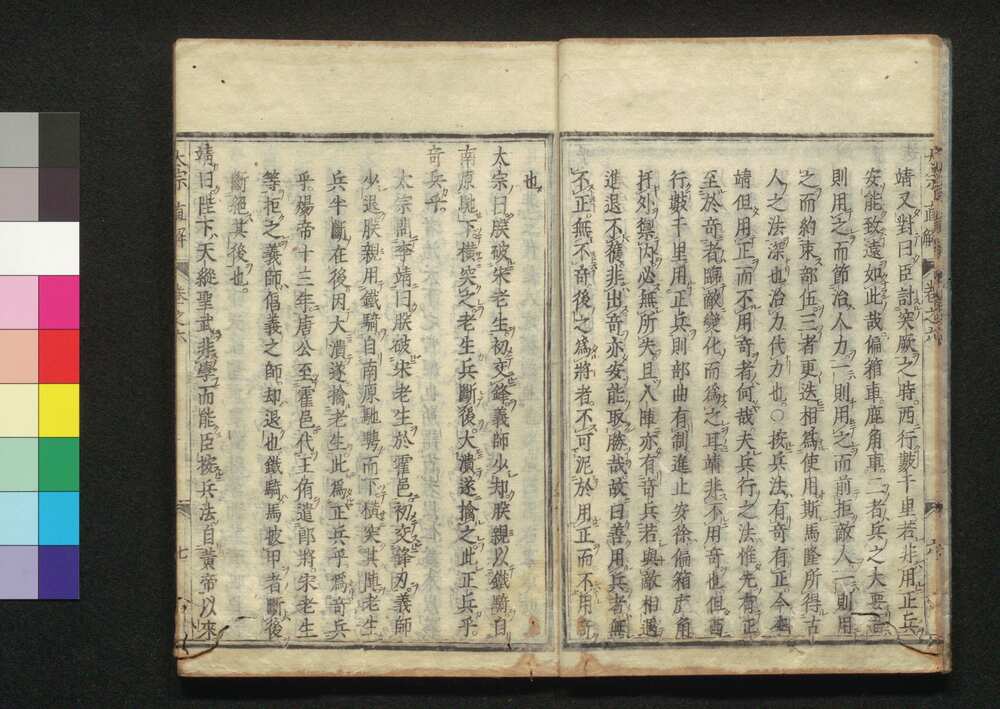 靖又對曰臣討突厥之時西行數千里若非用正兵
安能致遠如此哉偏箱車鹿角車二者兵之大要一
則用之而節治人力一則用之而前拒敵人一則用
之而約束部伍三者更迭相爲使用斯馬隆所得古
人之法深也治力代力也〇按兵法有奇有正今
靖但用正而不用奇者何哉夫兵行之法惟先有正
至於奇者臨敵變化而爲之耳靖非不用奇也但西
行數千里用正兵則部曲有制進止安徐偏箱鹿角
扞外禦內必無所失且入陣亦有奇兵若與敵相遇
進退不獲非出奇亦安能取勝哉故曰善用兵者無
不正無不奇後之爲將者不可泥於用正而不用奇
也
太宗曰朕破宋老生初交鋒義師少却朕親以鐵騎自
南原馳下橫突之老生兵斷後大潰遂擒之此正兵乎
奇兵乎
太宗問李靖曰朕破宋老生於霍邑初交鋒刃義師
少退朕親用鐵騎自南原馳騁而下橫突其陣老生
兵半斷在後因大潰遂擒老生此爲正兵乎爲奇兵
乎煬帝十三年唐公至霍邑代王侑遣郎將宋老生
等拒之義師倡義之師却退也鐵騎馬披甲者斷後
斷絕其後也
靖曰陛下天縱聖武非學而能臣按兵法自黃帝以來
太宗 直解 卷之六
七
直解 卷之六
六